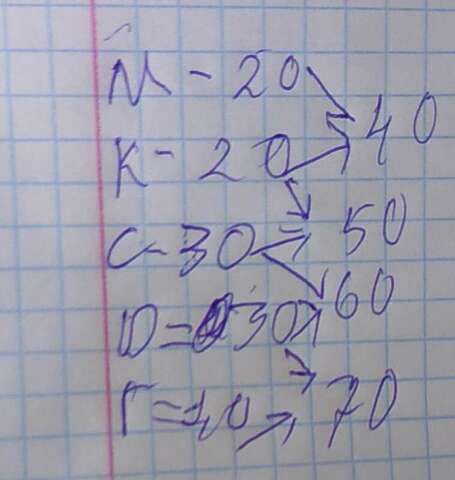 М - 20
40
К - 20
50
С - 30
60
Ю = 30
Г = 40
70